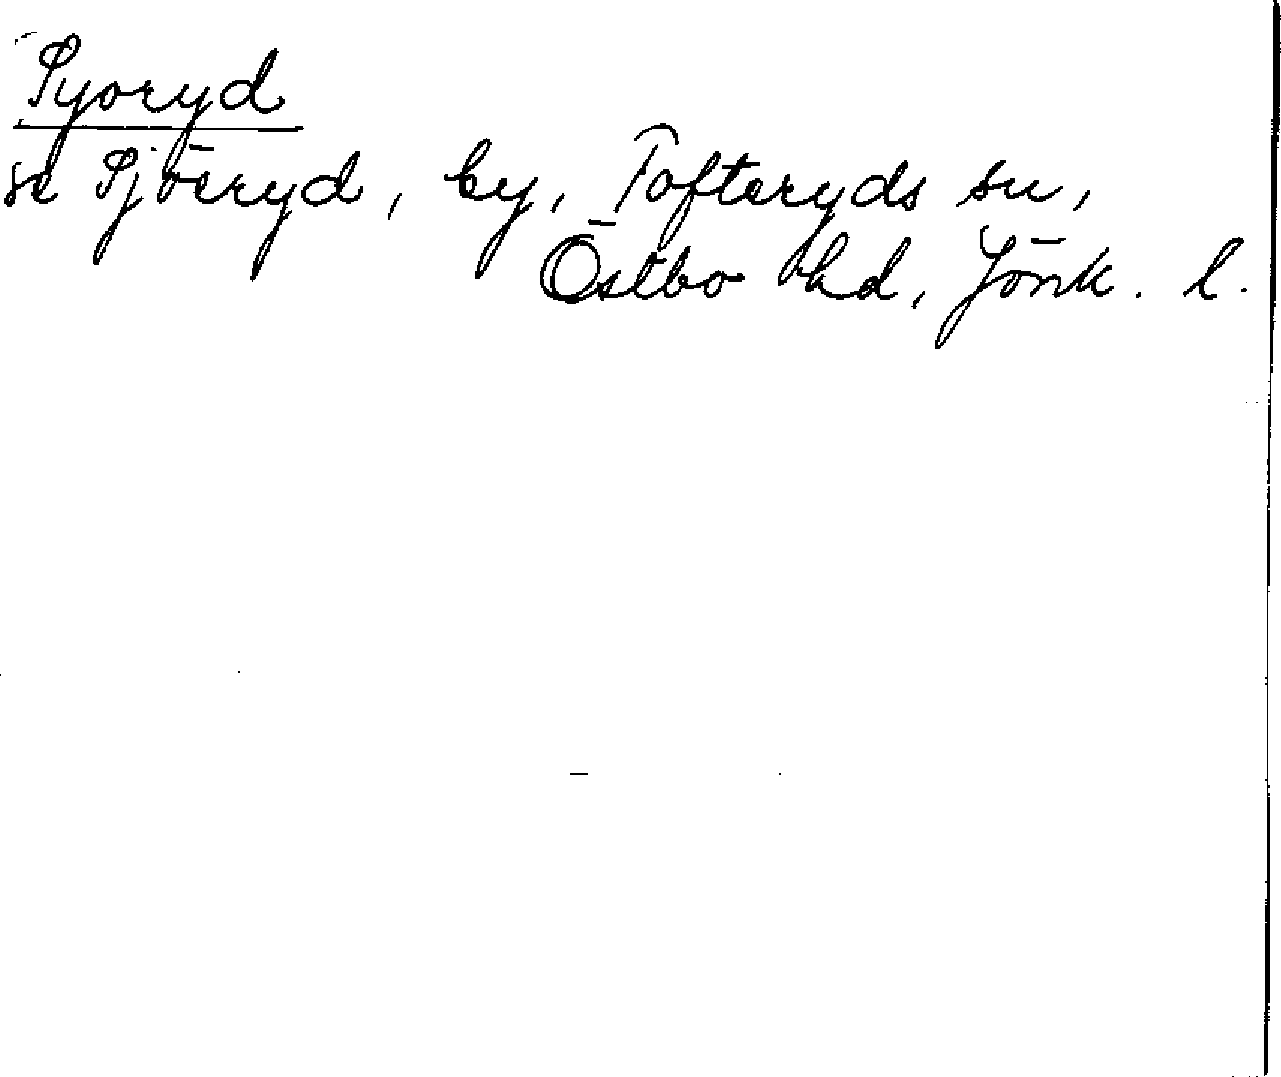 Syoryd
se Sjöeryd, by, Tofteryds sn,
Östbo hd, Jönk. l.